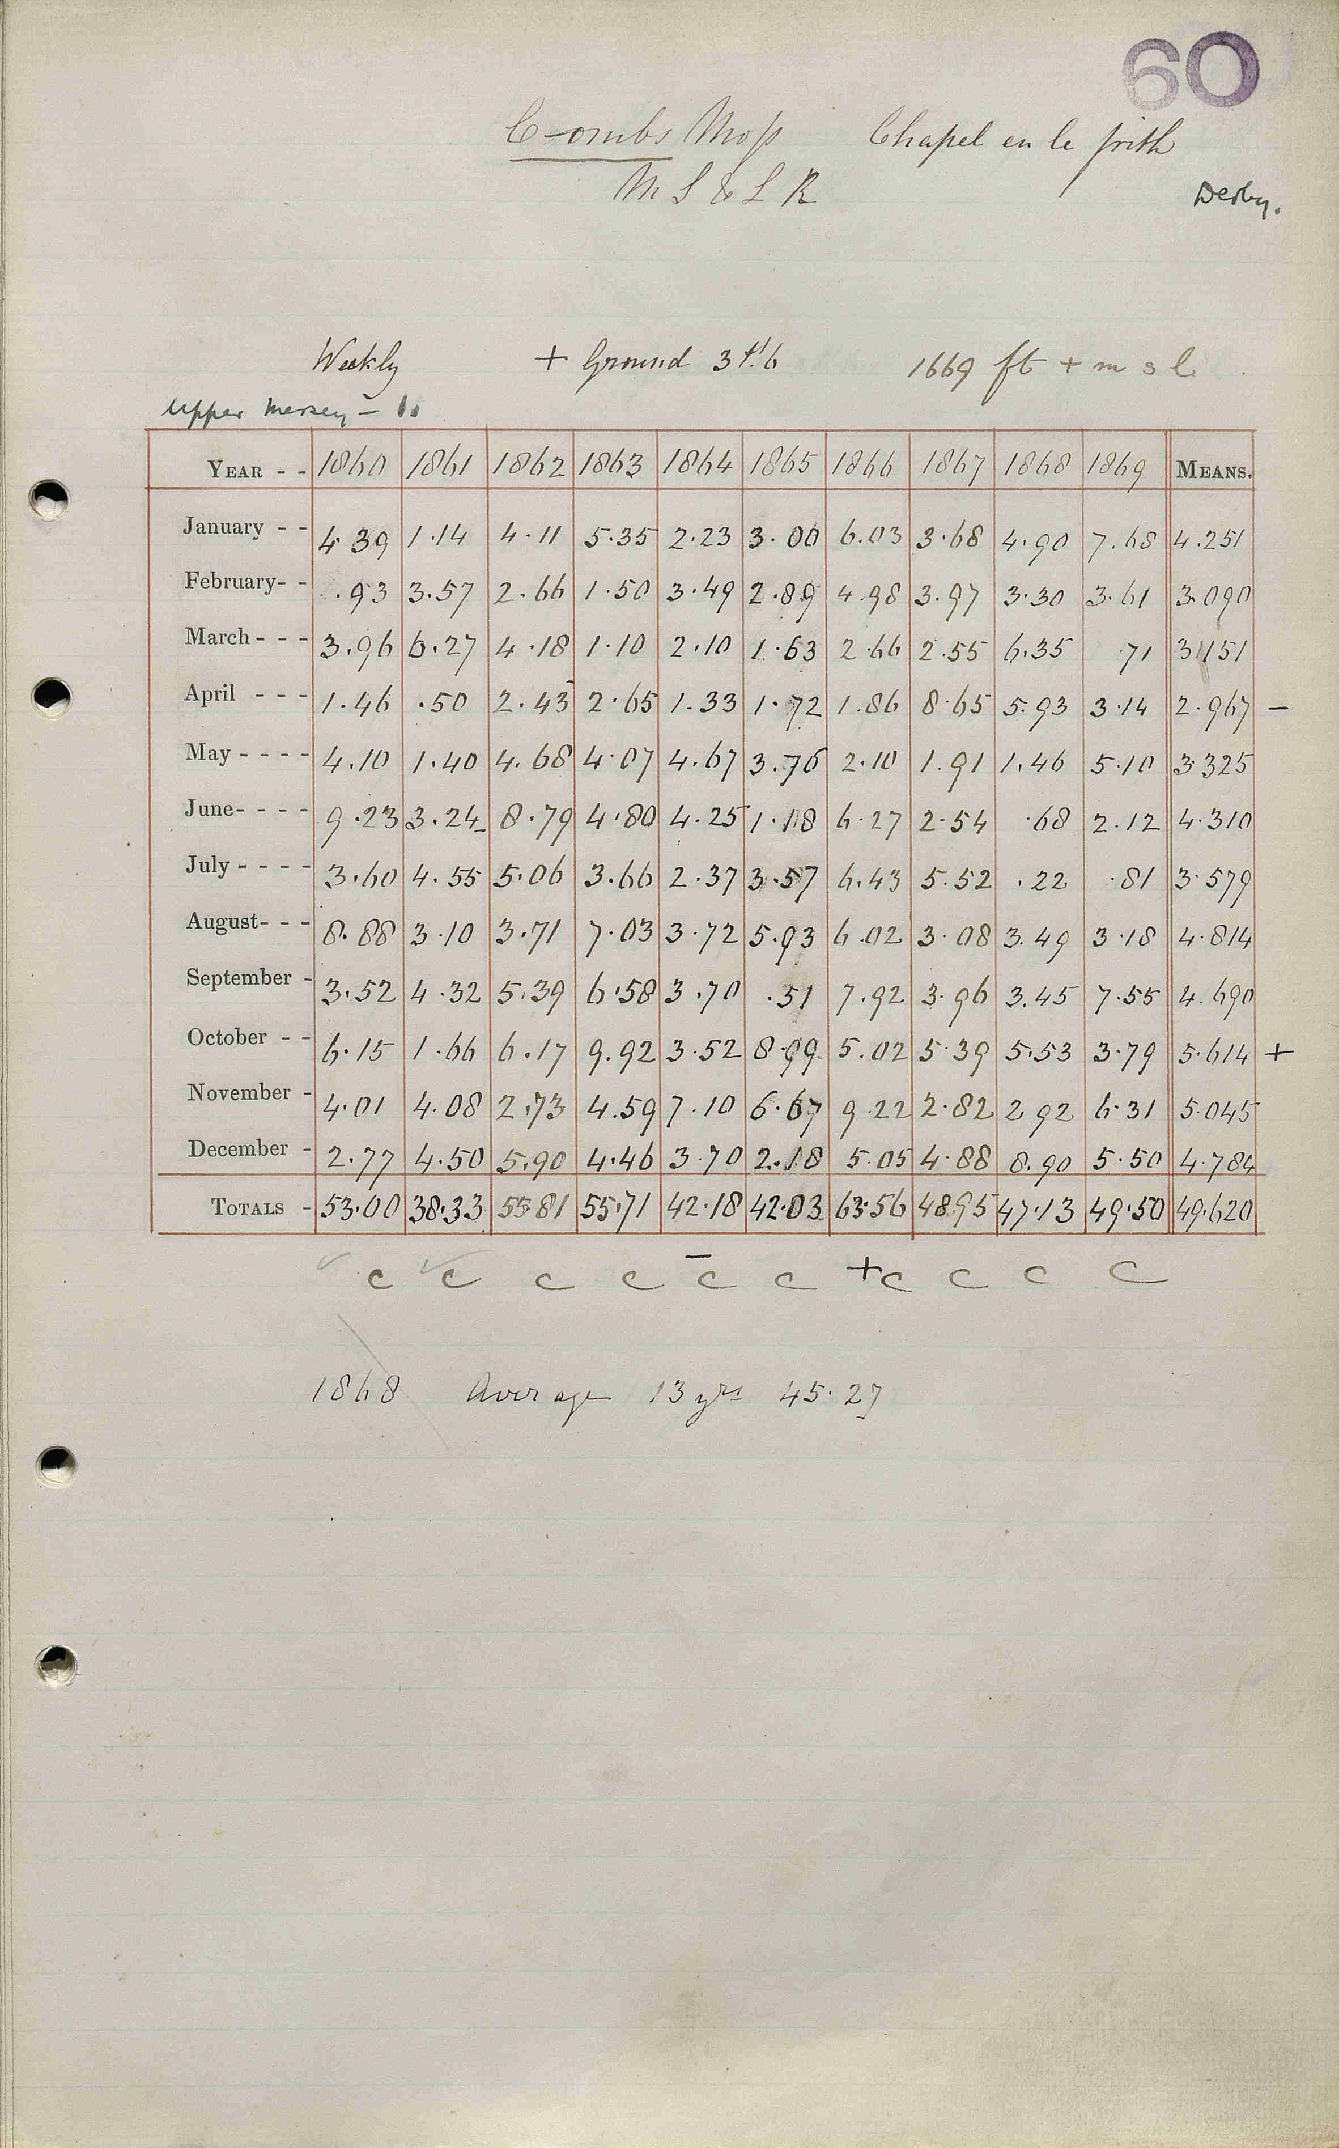 60
Combs Moss Chapel en le frith
M S & L R
Derby.
Weekly + Ground 3 ft. 6 1669 ft + m s l
Upper Mersey -
YEAR - - 1860 1861 1862 1863 1864 1865 1866 1867 1868 1869 MEANS.
January - - 4.39 1.14 4.11 5.35 2.23 3.00 6.03 3.68 4.90 7.68 4.251
February - - .93 3.57 2.66 1.50 3.49 2.89 4.98 3.97 3.30 3.61 3.090
March - - - 3.96 6.27 4.18 1.10 2.10 1.63 2.66 2.55 6.35 .71 3.151
April - - - 1.46 .50 2.43 2.65 1.33 1.72 1.86 8.65 5.93 3.14 2.967 -
May - - - - 4.10 1.40 4.68 4.07 4.67 3.76 2.10 1.91 1.46 5.10 3.325
June - - - - 9.23 3.24 8.79 4.80 4.25 1.18 6.27 2.54 .68 2.12 4.310
July - - - - 3.60 4.55 5.06 3.66 2.37 3.57 6.43 5.52 .22 .81 3.579
August - - - 8.88 3.10 3.71 7.03 3.72 5.93 6.02 3.08 3.49 3.18 4.814
September - 3.52 4.32 5.39 6.58 3.70 .51 7.92 3.96 3.45 7.55 4.690
October - - 6.15 1.66 6.17 9.92 3.52 8.99 5.02 5.39 5.53 3.79 5.614 +
November - 4.01 4.08 2.73 4.59 7.10 6.67 9.22 2.82 2.92 6.31 5.045
December - 2.77 4.50 5.90 4.46 3.70 2.18 5.05 4.88 8.90 5.50 4.784
TOTALS - 53.00 38.33 55.81 55.71 42.18 42.03 63.56 48.95 47.13 49.50 49.620
c c c c - c c + c c c c
1868 Average 13 yrs 45.27